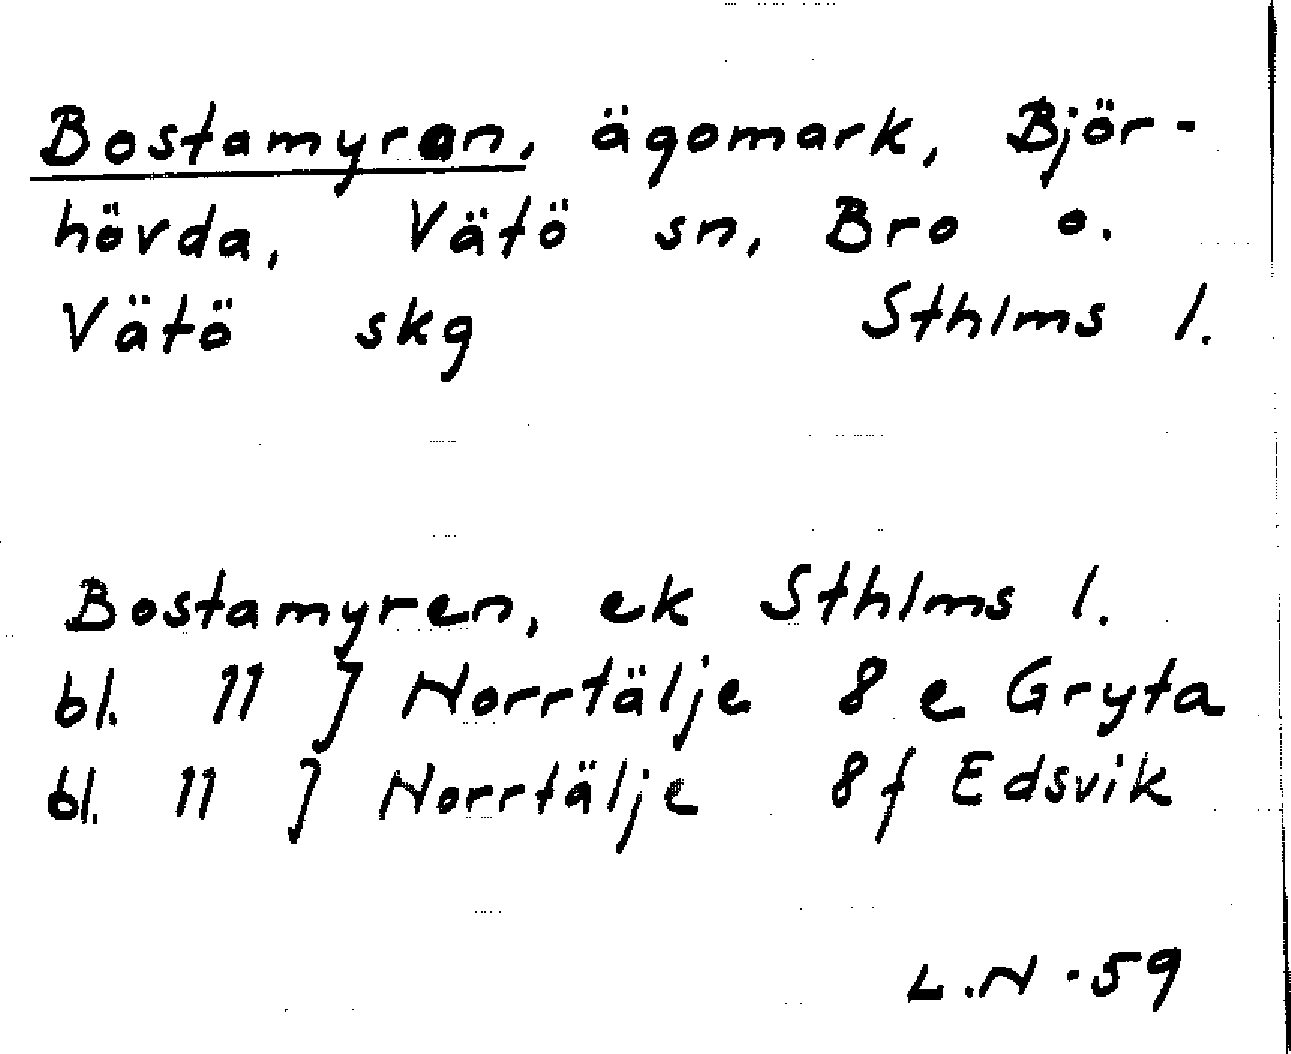 Bostamyran, ägomark, Björ-
hövda, Vätö sn, Bro o.
Vätö skg Sthlms l.
Bostamyren, ek Sthlms l.
bl. 11 J Norrtälje 8 e Gryta
bl. 11 J Norrtälje 8 f Edsvik
L.N - 59